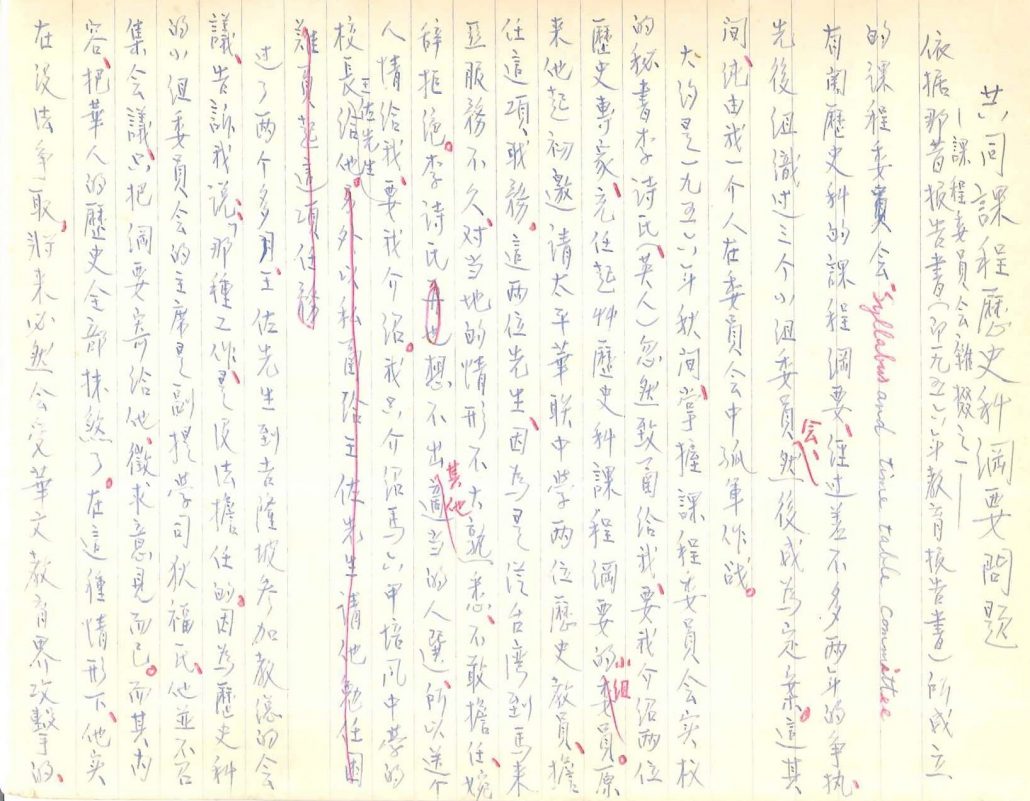 共同課程歷史科綱要問題
—課程委員会雜掇之一——
依据那昔報告書(即九五六年教育報告書)所成立
的課程委員会"Syllabus and time table committee
有関歷史科的課程綱要、経过差不多两年的爭执、
先後組識过三个小組委員会、然後成為定案。這其
间、纯由我一个人在委員会中孤軍作战。
大約是一九五六年秋间、掌握課程委員会实权
的秘書李詩氏(英人)忽然致函給我、要我介绍两位
歷史專家、充任起艸歷史科課程綱要的小組委員。原
来他起初邀請太平華联中学两位歷史教員、擔
任這項职務、這两位先生、因為是從台湾到馬来
亚服務不久、对当地的情形不大熟悉、不敢擔任、婉
辞拒絕。李詩氏再也想不出其他適当的人選、所以送个
人情給我、要我介绍。我只介绍馬六甲培风中学的
校長王佐先生給他。另外以私函給王佐先生請他勉任困
难負起這項任務
过了两个多月、王佐先生到吉隆坡参加教总的会
議、告訴我说、「那種工作是没法擔任的、因為歷史科
的小組委員会的主席是副提学司狄福氏、他並不召
集会議、只把綱要寄給他、徵求意見而已。而其内
容、把華人的歷史全部抹煞了。在這種情形下、他实
在没法争取、将来必然会受華文教育界攻擊的、